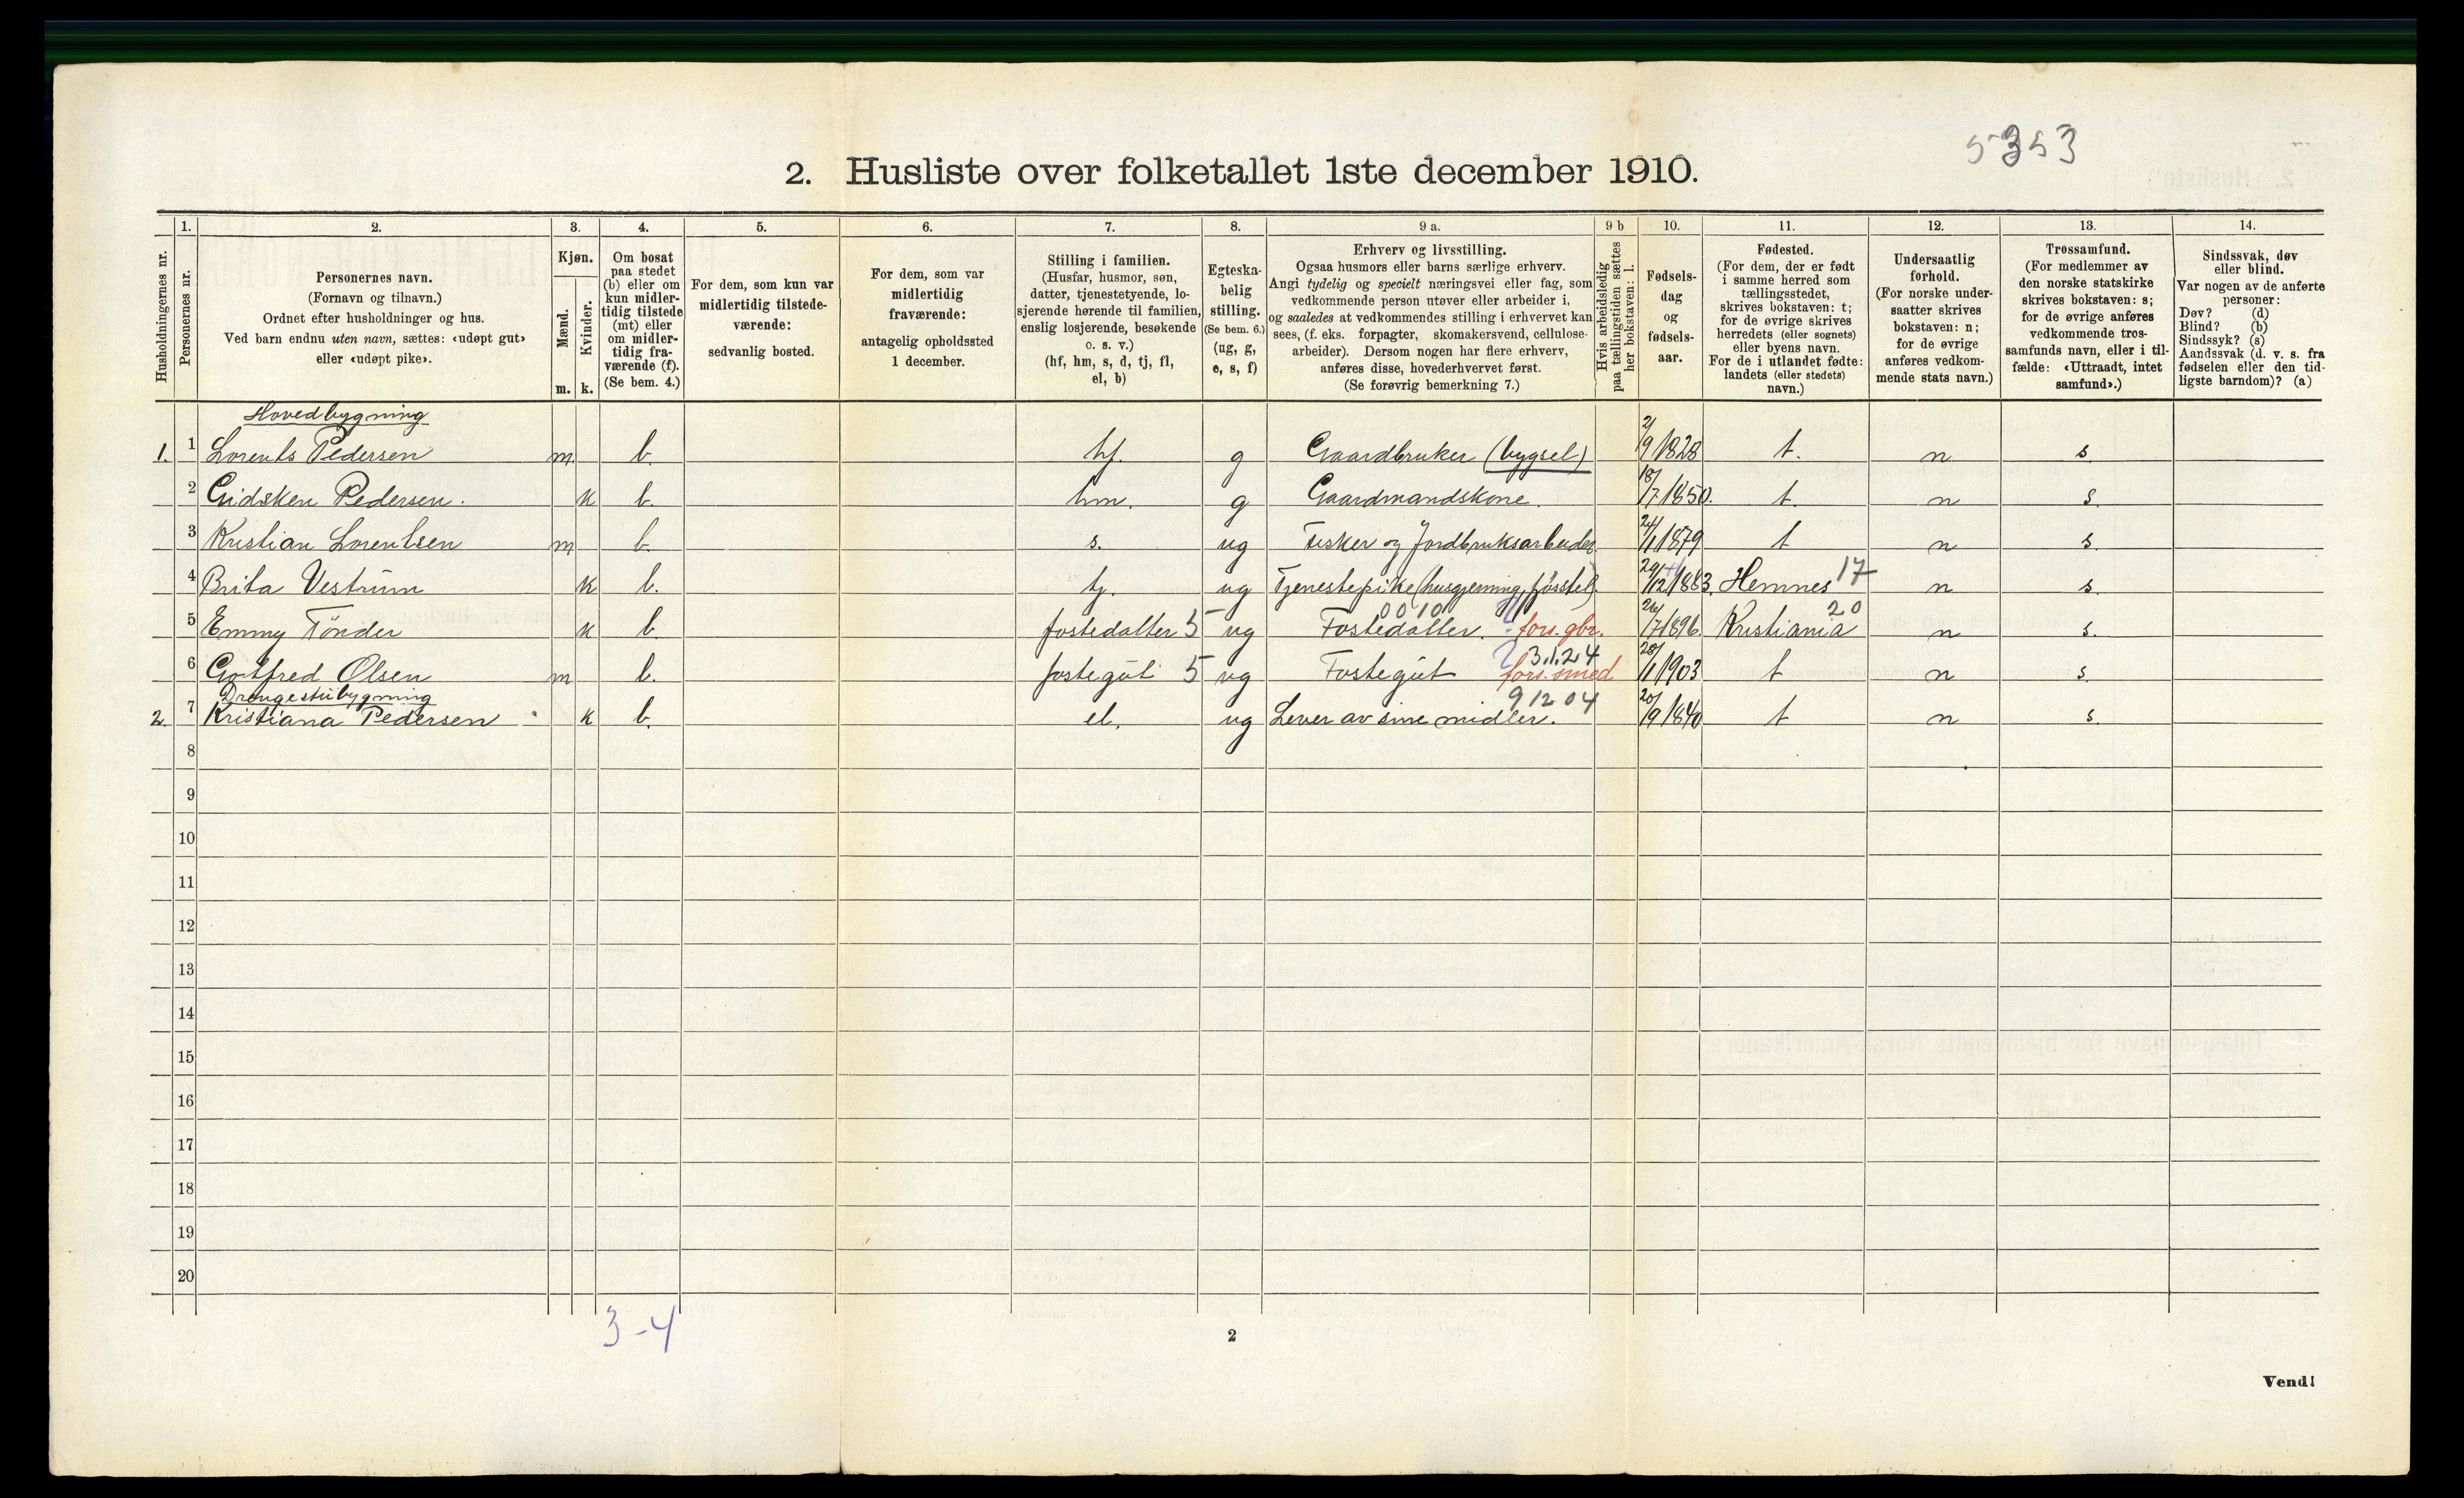 5353
2. Husliste over folketallet 1ste december 1910.
Husholdningernes nr.
1.
Personernes nr.
2.
Personernes navn.
(Fornavn og tilnavn.)
Ordnet efter husholdninger og hus.
Ved barn endnu uten navn, sættes: «udøpt gut»
eller «udøpt pike».
3.
Kjøn.
Mænd.
m.
Kvinder.
k.
4.
Om bosat
paa stedet
(b) eller om
kun midler-
tidig tilstede
(mt) eller
om midler-
tidig fra-
værende (f).
(Se bem. 4.)
5.
For dem, som kun var
midlertidig tilstede-
værende:
sedvanlig bosted.
6.
For dem, som var
midlertidig
fraværende:
antagelig opholdssted
1 december.
7.
Stilling i familien.
(Husfar, husmor, søn,
datter, tjenestetyende, lo-
sjerende hørende til familien,
enslig losjerende, besøkende
o. s. v.)
(hf, hm, s, d, tj, fl,
el, b)
8.
Egteska-
belig
stilling.
(Se bem. 6.)
(ug, g,
e, s, f)
9 a.
Erhverv og livsstilling.
Ogsaa husmors eller barns særlige erhverv.
Angi tydelig og specielt næringsvei eller fag, som
vedkommende person utøver eller arbeider i,
og saaledes at vedkommendes stilling i erhvervet kan
sees, (f. eks. forpagter, skomakersvend, cellulose-
arbeider). Dersom nogen har flere erhverv,
anføres disse, hovederhvervet først.
(Se forøvrig bemerkning 7.)
9 b
Hvis arbeidsledig
paa tællingstiden sættes
her bokstaven: l.
10.
Fødsels-
dag
og
fødsels-
aar.
11.
Fødested.
(For dem, der er født
i samme herred som
tællingsstedet,
skrives bokstaven: t;
for de øvrige skrives
herredets (eller sognets)
eller byens navn.
For de i utlandet fødte:
landets (eller stedets)
navn.)
12.
Undersaatlig
forhold.
(For norske under-
saatter skrives
bokstaven: n;
for de øvrige
anføres vedkom-
mende stats navn.)
13.
Trossamfund.
(For medlemmer av
den norske statskirke
skrives bokstaven: s;
for de øvrige anføres
vedkommende tros-
samfunds navn, eller i til-
fælde: «Uttraadt, intet
samfund».)
14.
Sindssvak, døv
eller blind.
Var nogen av de anførte
personer:
Døv? (d)
Blind? (b)
Sindssyk? (s)
Aandssvak (d. v. s. fra
fødselen eller den tid-
ligste barndom)? (a)
Hovedbygning
1. 1 Lorents Pedersen m b. hf. g Gaardbruker (bygsel) 2/9 1828 t. n s
2 Gidsken Pedersen. k b. hm. g Gaardmandskone. 18/7 1850. t. n s.
3 Kristian Lorentsen m b. s. ug Fisker og Jordbruksarbeider. 24/1 1879 t n s.
4 Brita Vestrum k b. tj. ug Tjenestepike (husgjerning, fjøsstel). 29/12 1883. Hemnes 17 n s.
0010 20
5 Emmy Tönder k b. fostedatter 5 ug Fostedatter. fors. gbr. 24/7 1896. Kristiania n s.
3.1.24
6 Gottfred Olsen m b. fostegut 5 ug Fostegut fors. smed 28/1 1903 t n s.
Drengestubygning 9 12 04
2. 7 Kristiana Pedersen k b. el. ug Lever av sine midler. 20/9 1840 t n s.
8
9
10
11
12
13
14
15
16
17
18
19
20
3-4
2
Vend!